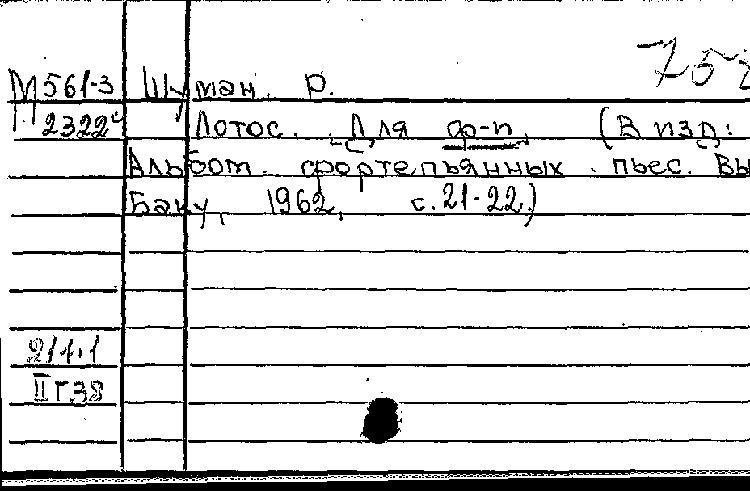 75
М561-3 Шуман. Р.
2322 Лотос. Для ф-п. (В изд:
Альбом. фортепьянных. пьес. Вы
Баку, 1962, с. 21-22)
214.1
II Г.38